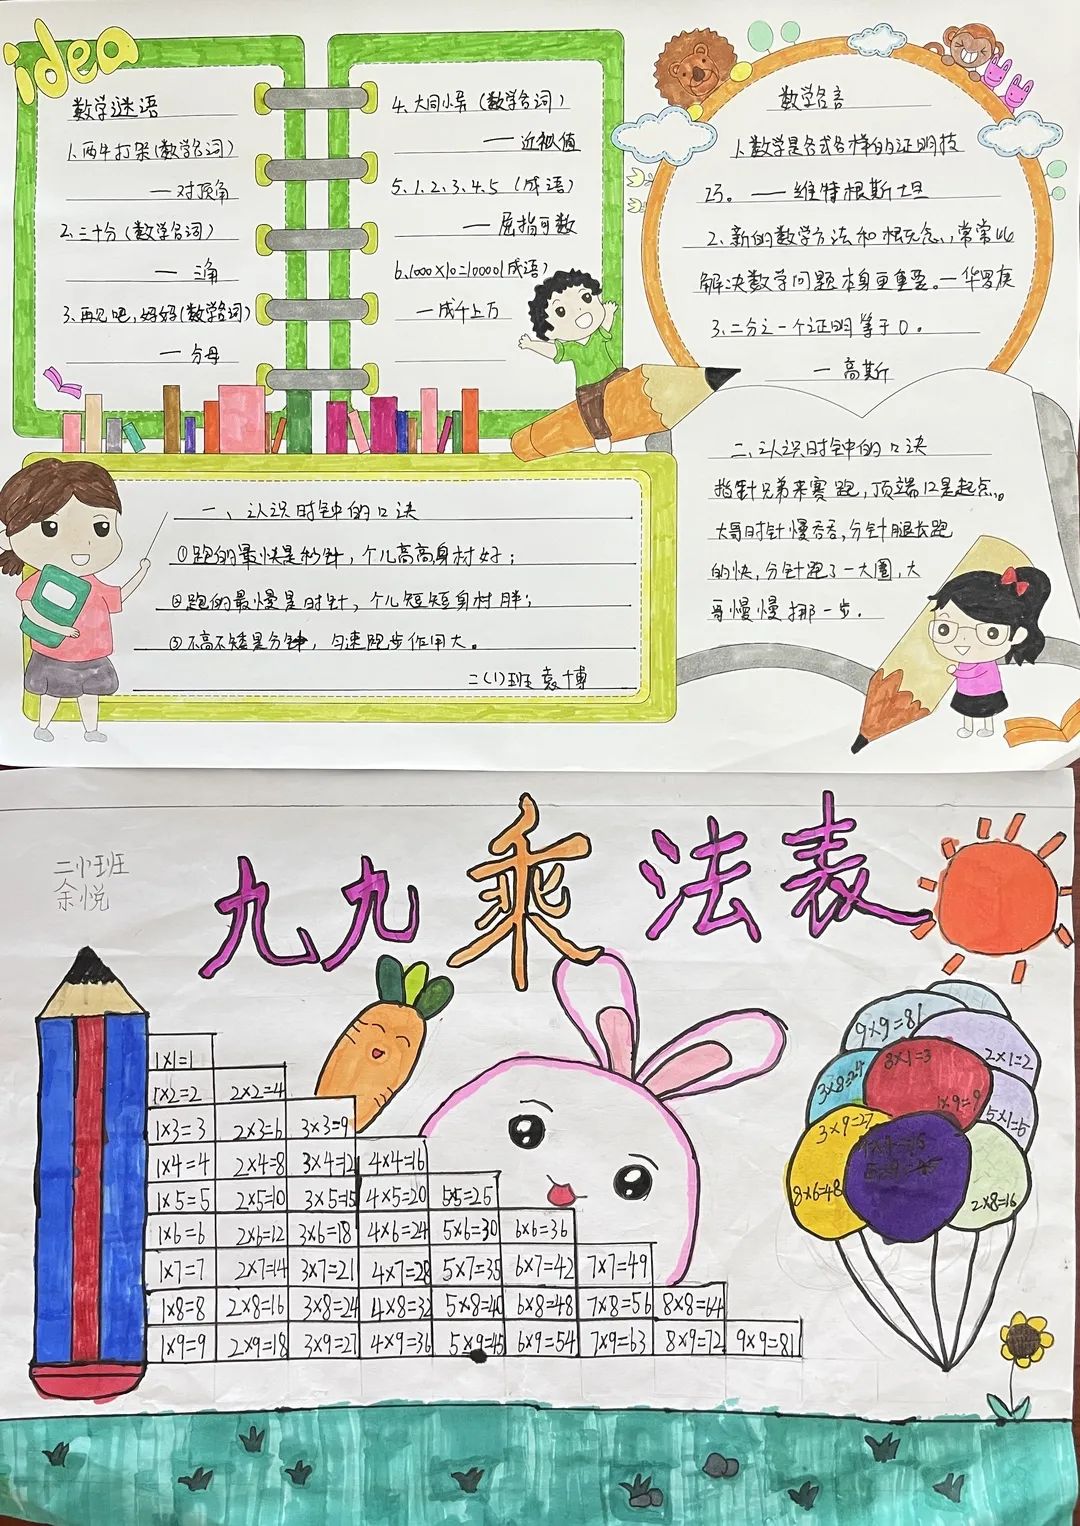 idea
数学谜语
1.两牛打架(数学名词)
—对顶角
2.三十分(数学名词)
—三角
3.再见吧,妈妈(数学名词)
—分母
4.大同小异(数学名词)
—近似值
5.1.2.3.4.5(成语)
—屈指可数
6.1000×10=10000(成语)
—成千上万
数学名言
1.数学是各式各样的证明技
巧。——维特根斯坦
2.新的数学方法和概念,常常比
解决数学问题本身更重要。—华罗庚
3.二分之一个证明等于0。
—高斯
一、认识时钟的口诀
①跑的最快是秒针,个儿高高身材好;
②跑的最慢是时针,个儿短短身材胖;
③不高不矮是分钟,匀速跑步作用大。
二(1)班 袁博
二、认识时钟的口诀
指针兄弟来赛跑,顶端12是起点。
大哥时针慢吞吞,分针腿长跑
的快,分针跑了一大圈,大
哥慢慢挪一步.
二小班
余悦
九九乘法表
1×1=1
1×2=2 2×2=4
1×3=3 2×3=6 3×3=9
1×4=4 2×4=8 3×4=12 4×4=16
1×5=5 2×5=10 3×5=15 4×5=20 5×5=25
1×6=6 2×6=12 3×6=18 4×6=24 5×6=30 6×6=36
1×7=7 2×7=14 3×7=21 4×7=28 5×7=35 6×7=42 7×7=49
1×8=8 2×8=16 3×8=24 4×8=32 5×8=40 6×8=48 7×8=56 8×8=64
1×9=9 2×9=18 3×9=27 4×9=36 5×9=45 6×9=54 7×9=63 8×9=72 9×9=81
9×9=81
3×1=3
2×1=2
3×8=24
1×9=9
5×1=5
3×9=27
8×6=48
2×8=16